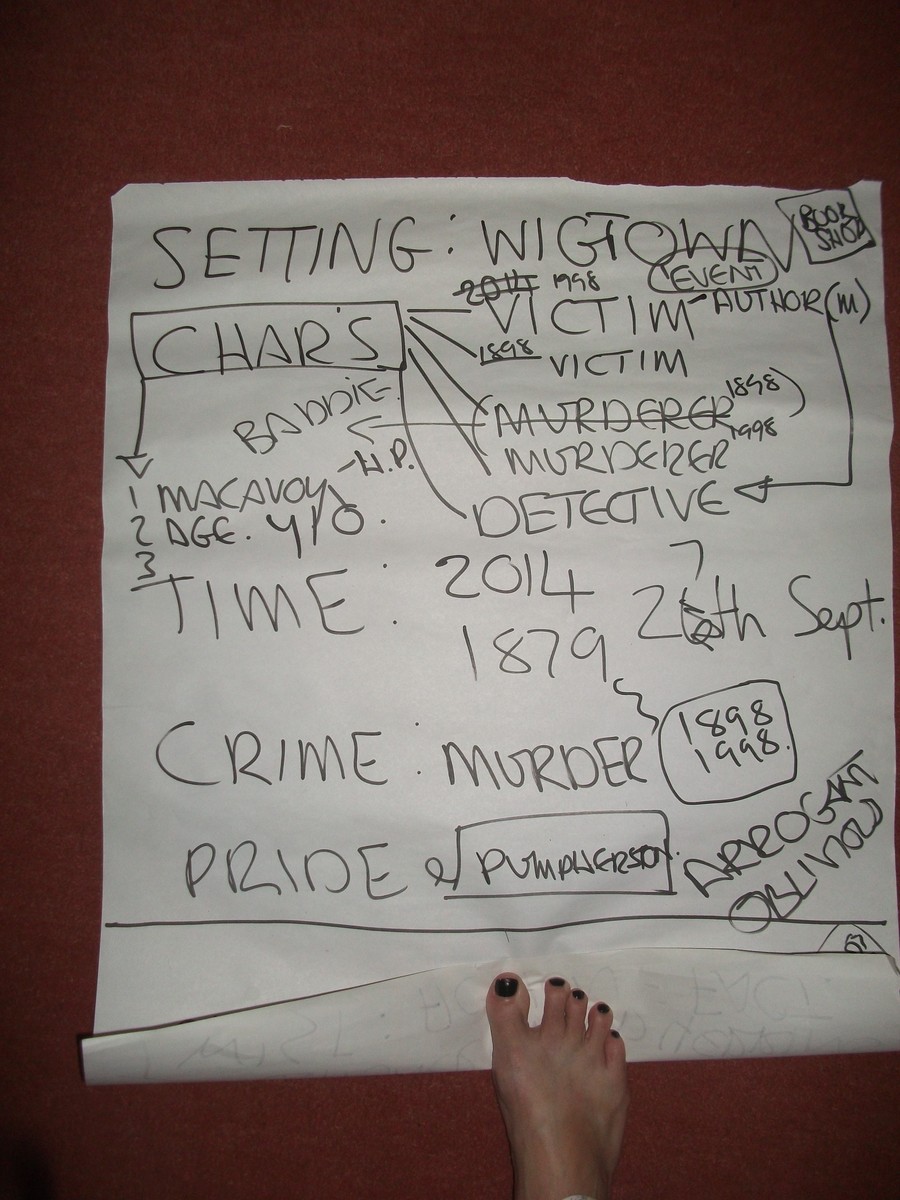 SETTING: WIGTOWN
BOOK
SHOP
2014 1998
EVENT
CHAR'S
VICTIM - AUTHOR (M)
1898 VICTIM
BADDIE
(MURDERER 1898)
MURDERER 1998
- H.P.
1 MACAVOY
DETECTIVE
2 AGE. 41
3
TIME: 2014
7
26th Sept.
1879
CRIME: MURDER
1898
1998.
PRIDE
PUMPHERSTON
ARROGANT
OBLIVIOUS